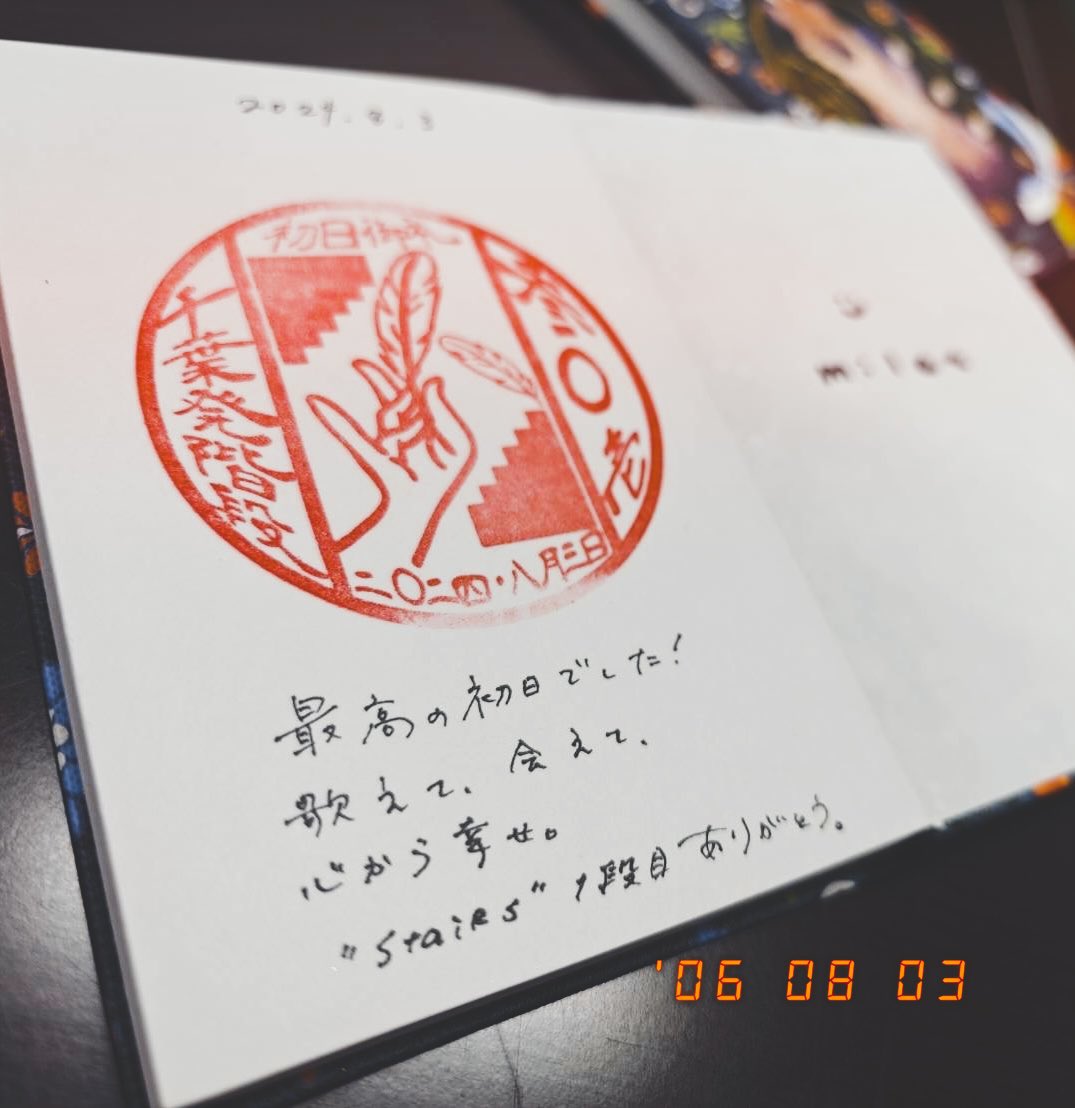 2024.8.3
初日御礼
千葉発階段
二〇二四・八月三日
milet
最高の初日でした!
歌えて、会えて、
心から幸せ。
"Stairs" 1段目ありがとう。
'06 08 03